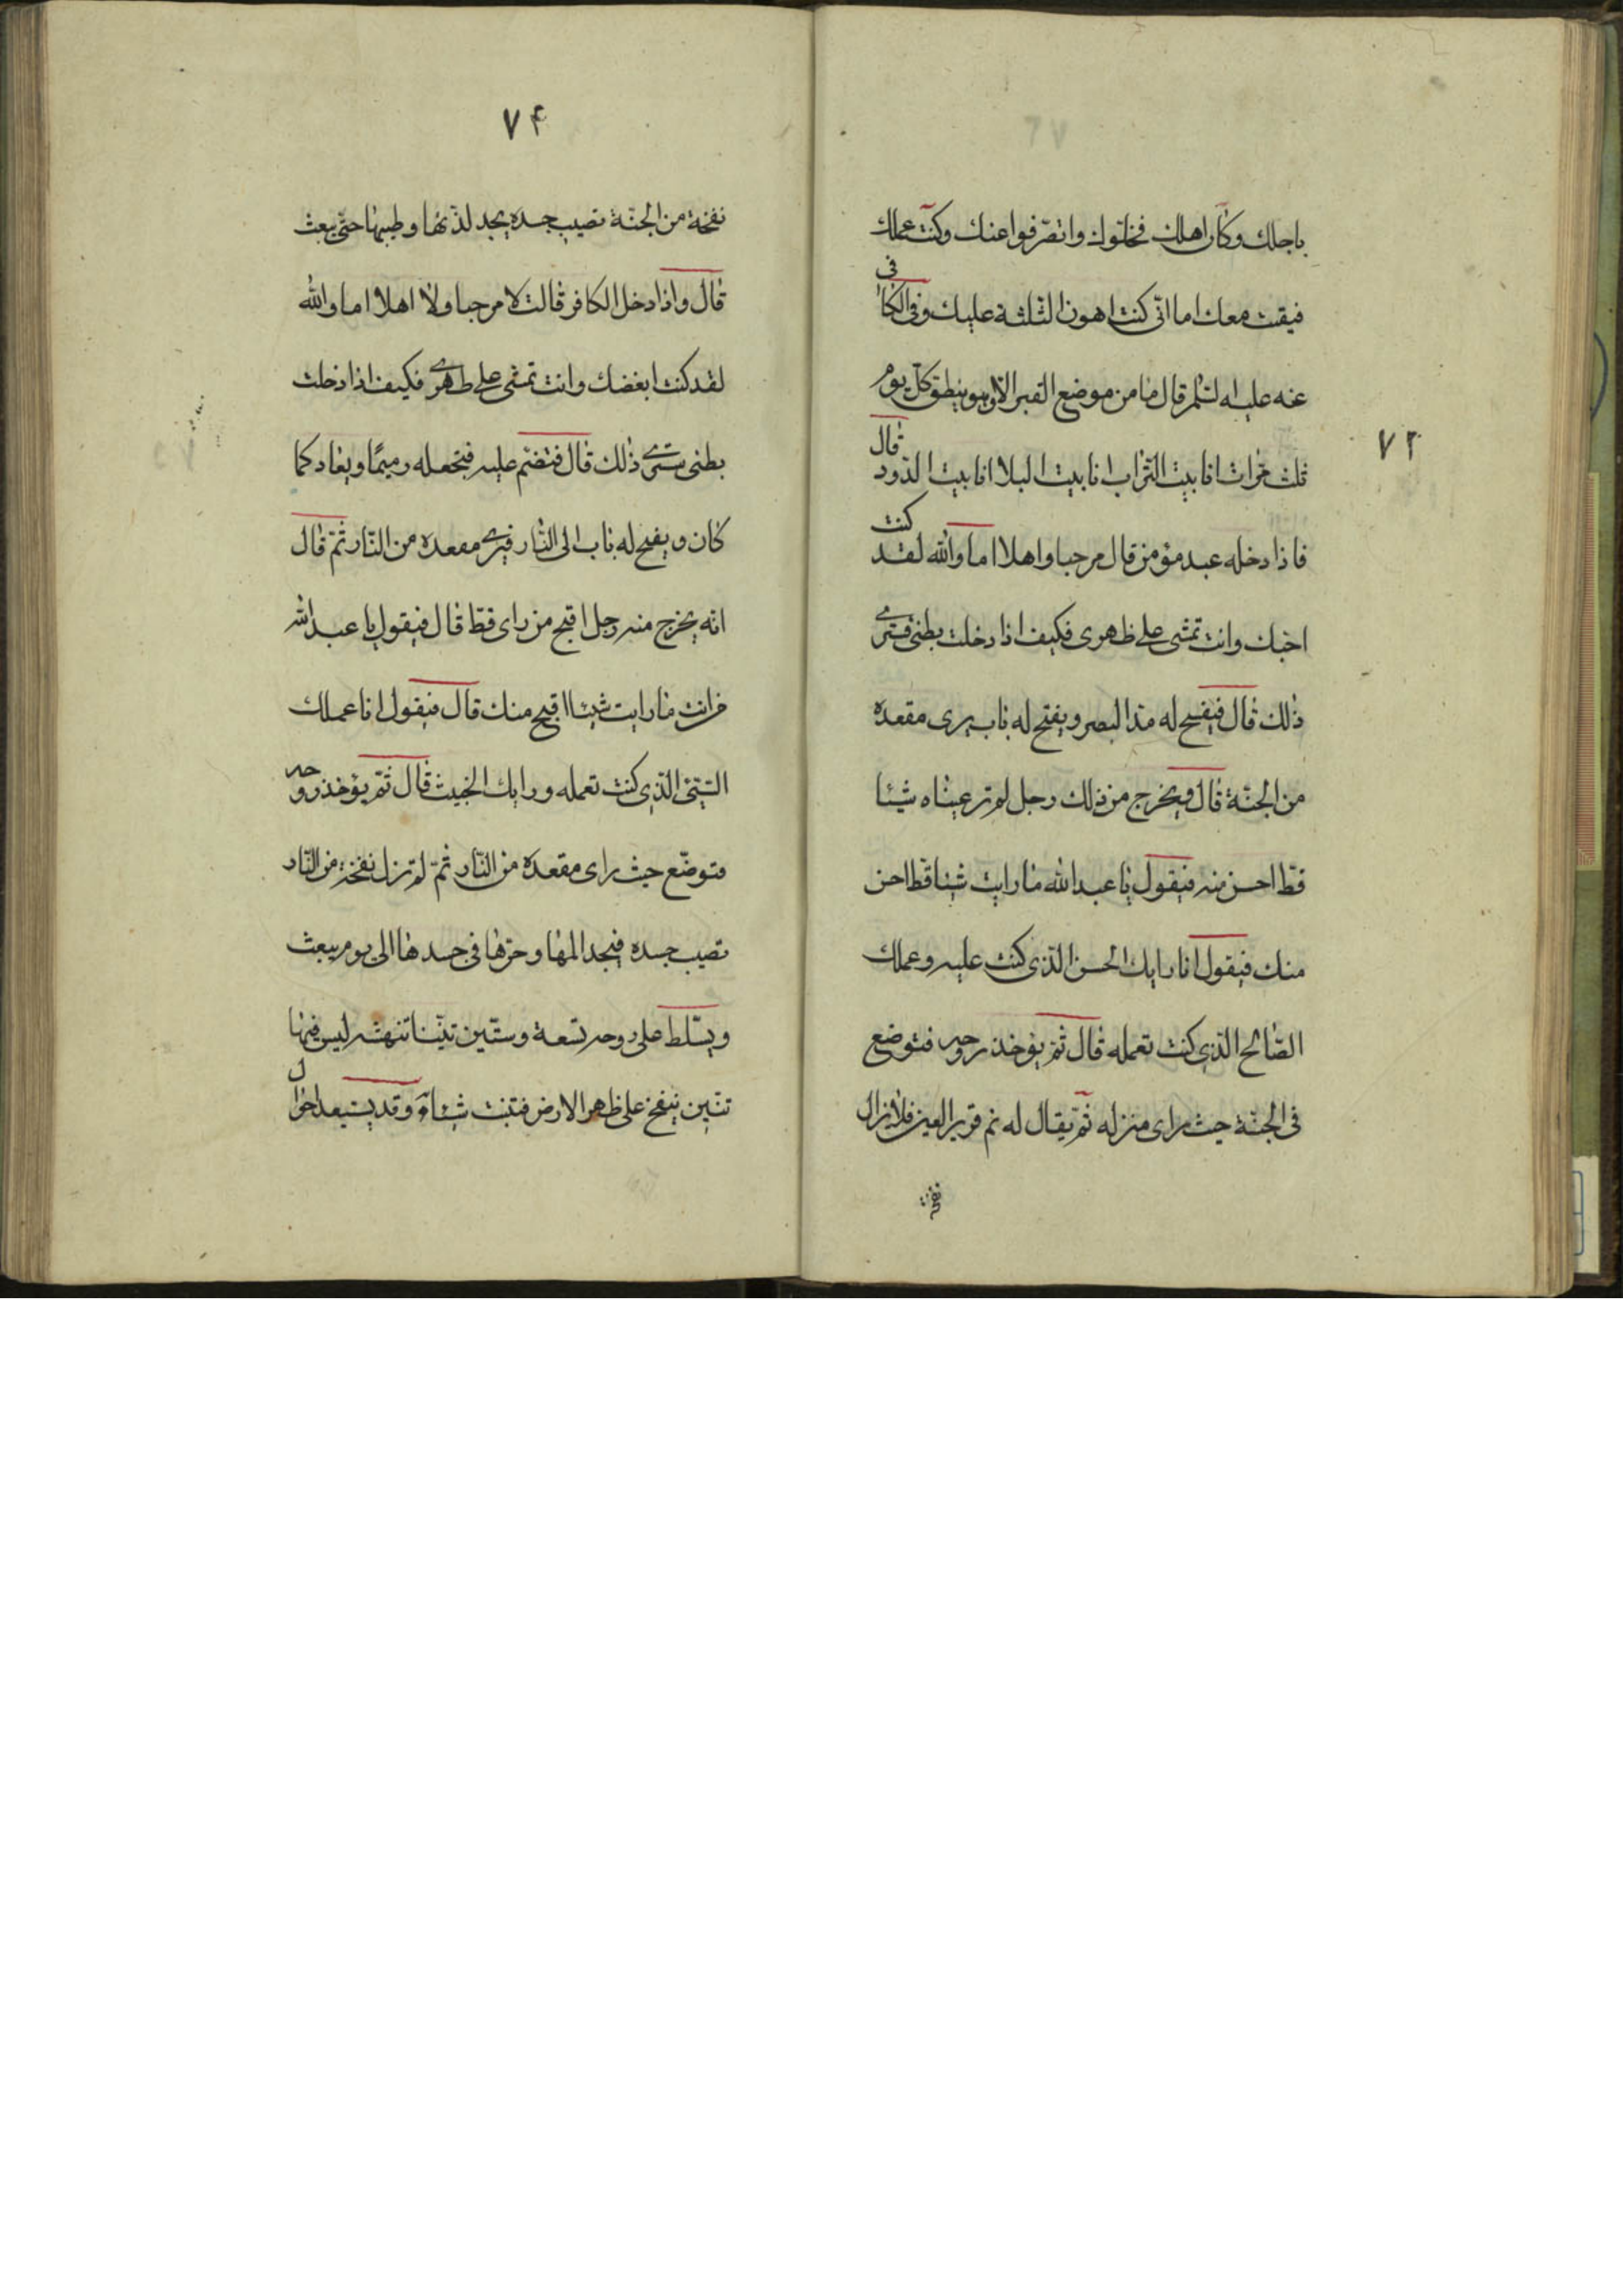 باجلك وكان اهلك فخلوك وانصرفوا عنك وكنت عملك
فبقيت معك اما انى كنت اهون الثلثة عليك وفى الكافى
عنه عليه السلم قال ما من موضع القبر الا وهو ينطق كل يوم
ثلث مرات انا بيت التراب انا بيت البلا انا بيت الدود قال
فاذا دخله عبد مؤمن قال مرحبا واهلا اما والله لقد كنت
احبك وانت تمشى على ظهرى فكيف اذا دخلت بطنى فسترى
ذلك قال فيفسح له مد البصر ويفتح له باب يرى مقعده
من الجنة قال ويخرج من ذلك رجل لم تر عيناه شيئا
قط احسن منه فيقول يا عبد الله ما رايت شيئا قط احسن
منك فيقول انا رايك الحسن الذى كنت عليه وعملك
الصالح الذى كنت تعمله قال ثم يؤخذ روحه فتوضع
فى الجنة حيث راى منزله ثم يقال له نم قرير العين فلا يزال
نفخة
٧٢
٧۴
نفخة من الجنة تصيب جسده يجد لذتها وطيبها حتى يبعث
قال واذا دخل الكافر قالت لا مرحبا ولا اهلا اما والله
لقد كنت ابغضك وانت تمشى على ظهرى فكيف اذا دخلت
بطنى سترى ذلك قال فتضم عليه فتجعله رميما ويعاد كما
كان ويفتح له باب الى النار فيرى مقعده من النار ثم قال
انه يخرج منه رجل اقبح من راى قط قال فيقول يا عبد الله
من انت ما رايت شيئا اقبح منك قال فيقول انا عملك
السيئ الذى كنت تعمله ورايك الخبيث قال ثم يؤخذ روحه
فتوضع حيث راى مقعده من النار ثم لم تزل نفخة من النار
تصيب جسده فيجد المها وحرها فى جسدها الى يوم يبعث
ويسلط على روحه تسعة وستين تنينا تنهشه ليس فيها
تنين ينفخ على ظهر الارض فتنبت شيئا وقد يستبعد احوال